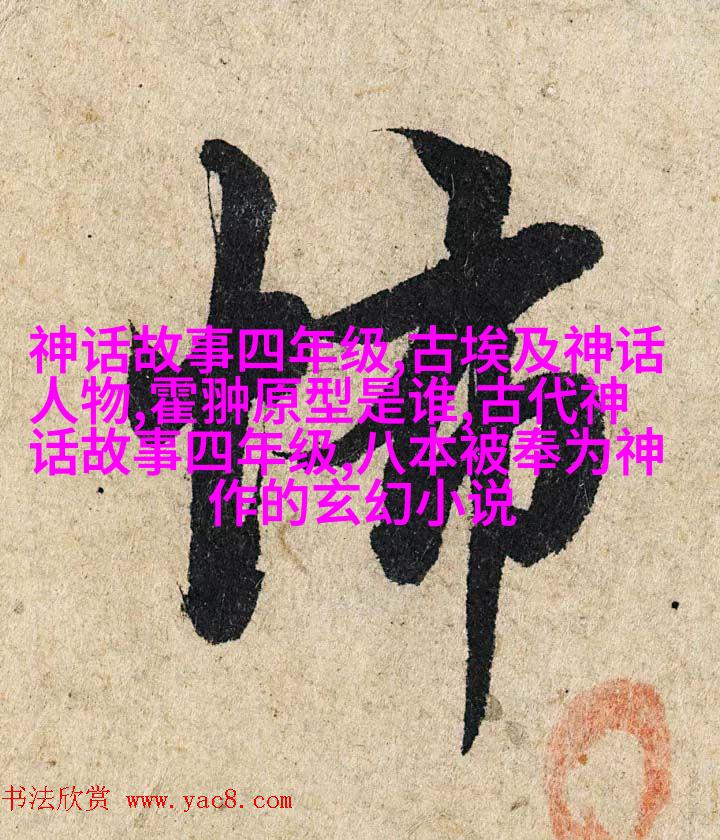 神话故事四年级,古埃及神话
人物,霍翀原型是谁,古代神
话故事四年级,八本被奉为神
作的玄幻小说
书法欣赏 www.yac8.com